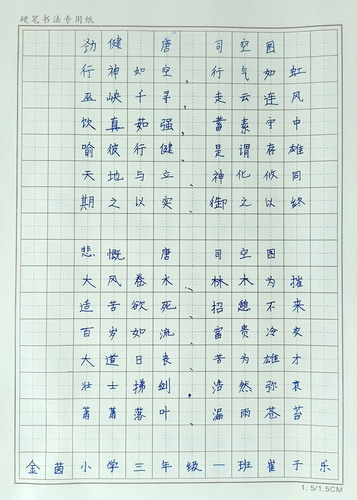 硬笔书法专用纸
劲健 唐 司空图
行神如空，行气如虹
巫峡千寻，走云连风
饮真茹强，蓄素守中
喻彼行健，是谓存雄
天地与立，神化攸同
期之以实，御之以终
悲慨 唐 司空图
大风卷水，林木为摧
适苦欲死，招憩不来
百岁如流，富贵冷灰
大道日丧，苦为雄才
壮士拂剑，浩然弥哀
萧萧落叶，漏雨苍苔
金茵小学三年级一班崔于乐
1.5/1.5CM